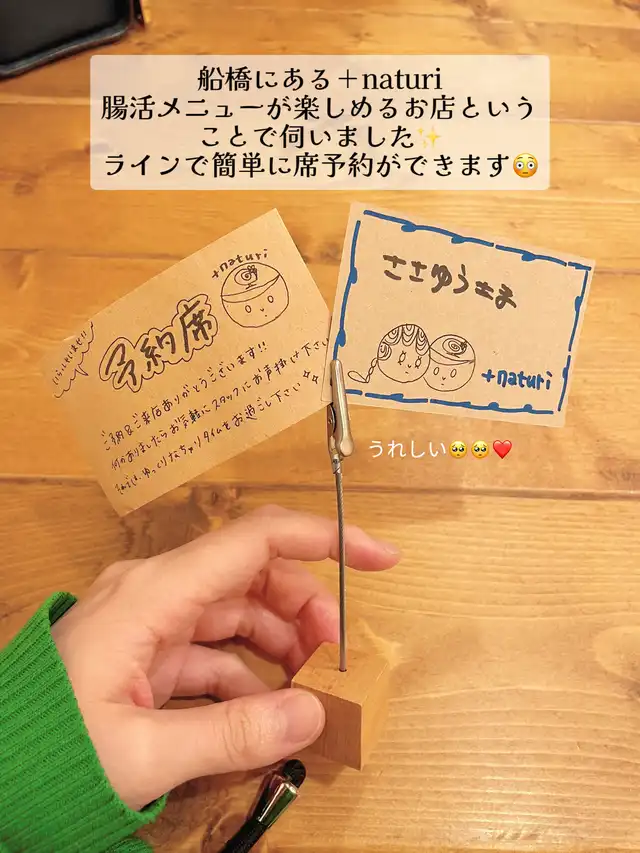 船橋にある＋naturi
腸活メニューが楽しめるお店という
ことで伺いました✨
ラインで簡単に席予約ができます😳
いらっしゃいませ!!
予約席
+naturi
ご予約&ご来店ありがとうございます!!
何かありましたらお気軽にスタッフにお声掛け下さい
それでは、ゆっくりなちゅりタイムをお過ごし下さい
ささゆうさま
+naturi
うれしい🥺🥺❤️